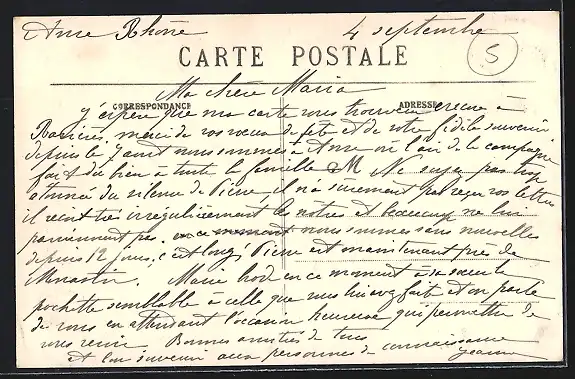 Anse Rhône 4 septembre
S
CARTE POSTALE
Ma chère Maria
CORRESPONDANCE ADRESSE
j'espère que ma carte vous trouvera encore à
merci de vos vœux de fête et de votre fidèle souvenir
depuis le 7 août nous sommes à Anse où l'air de la campagne
fait du bien à toute la famille Ne soyez pas trop
étonnée du silence de Pierre, il n'a surement pas reçu vos lettres
il reçoit très irrégulièrement les nôtres et beaucoup ne lui
parviennent pas. nous sommes sans nouvelles
depuis 12 jours, c'est long! Pierre est maintenant près de
Marie brode en ce moment à sa
pochette semblable à celle que vous lui avez fait et on parle
de vous en attendant l'occasion heureuse qui permettra de
vous revoir Bonnes amitiés de tous
et bon souvenir aux personnes de connaissance
Jeanne